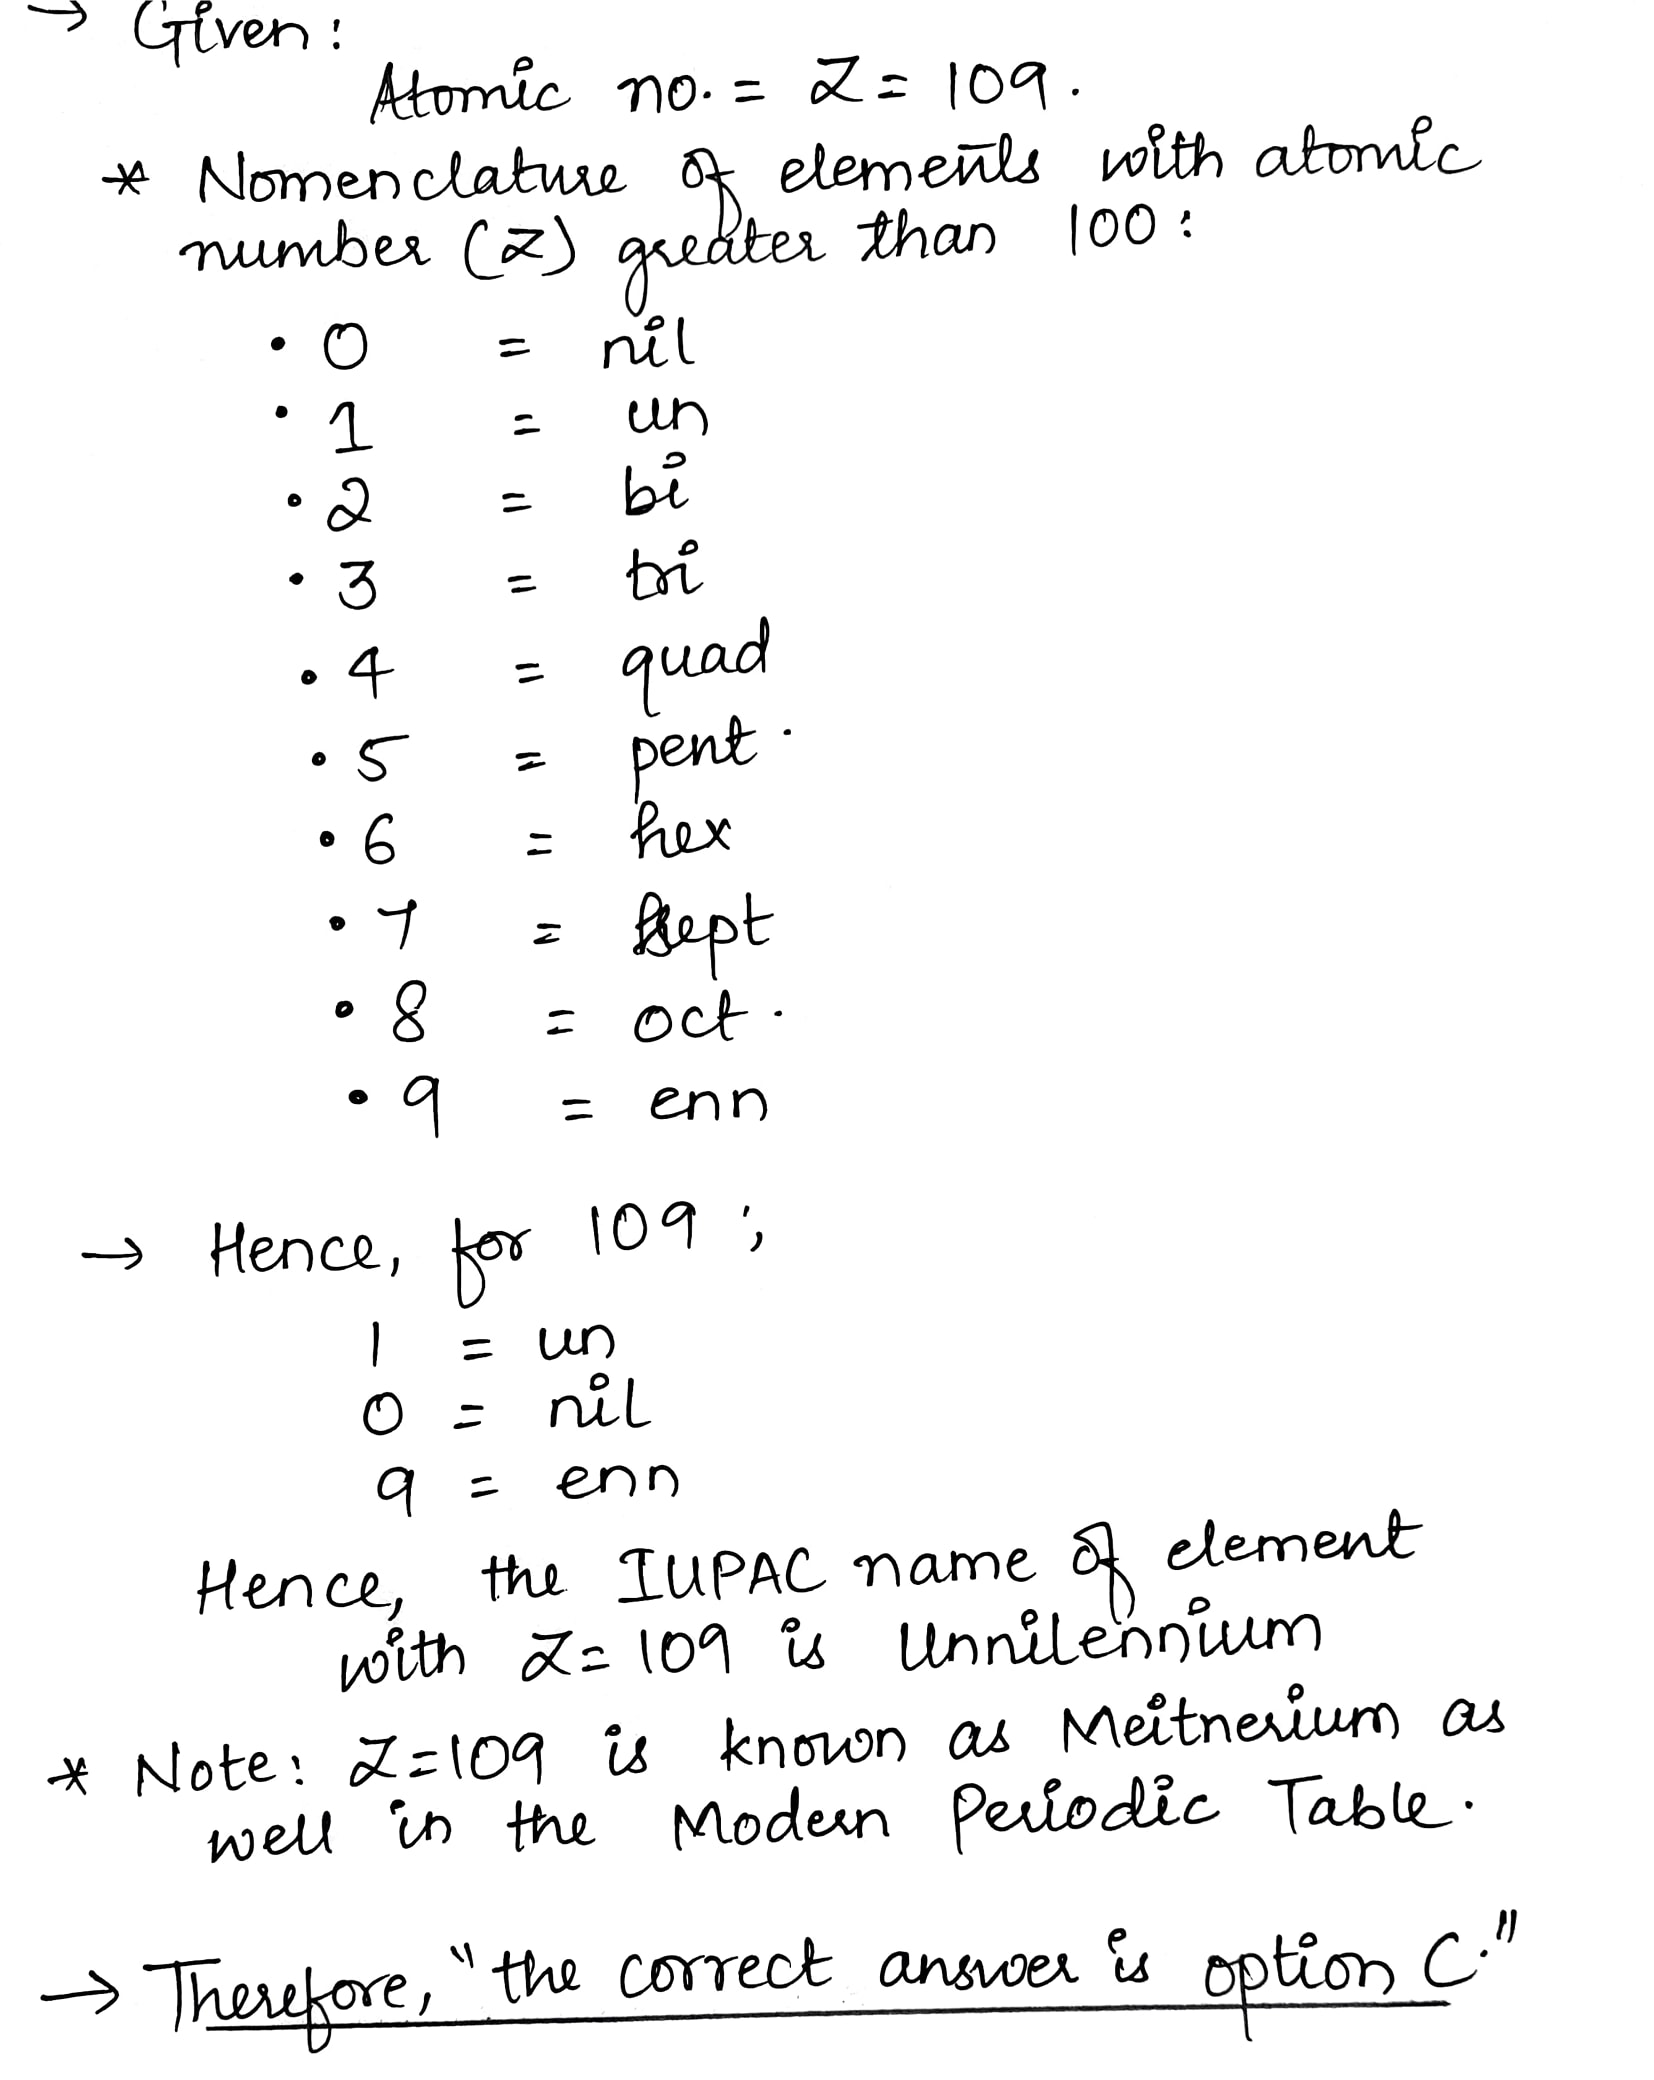 → Given :
Atomic no. = Z = 109.
* Nomenclature of elements with atomic
number (Z) greater than 100 :
• 0 = nil
• 1 = un
• 2 = bi
• 3 = tri
• 4 = quad
• 5 = pent.
• 6 = hex
• 7 = sept
• 8 = oct.
• 9 = enn
→ Hence, for 109 ;
1 = un
0 = nil
9 = enn
Hence, the IUPAC name of element
with Z = 109 is Unnilennium
* Note: Z=109 is known as Meitnerium as
well in the Modern Periodic Table.
→ Therefore, "the correct answer is option C."